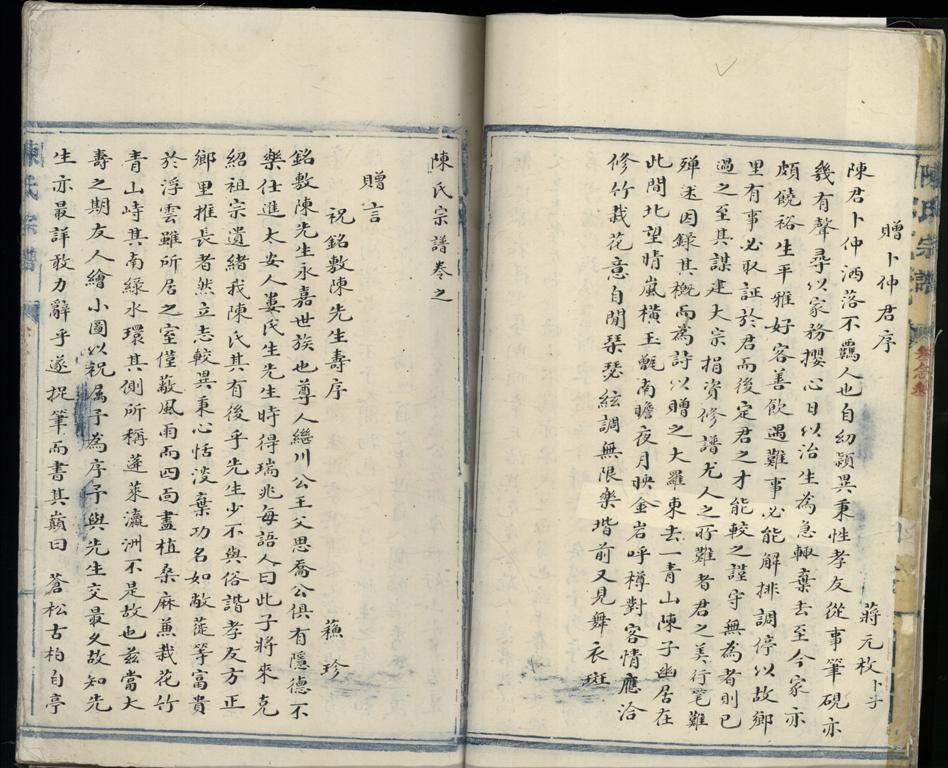 贈卜仲君序
蔣元枚卜子
陳君卜仲洒落不羈人也自幼頴異秉性孝友從事筆硯亦
幾有聲尋以家務攖心日以治生為急輙棄去至今家亦
頗饒裕生平雅好客善飲遇難事必能解排調停以故鄉
里有事必取証於君而後定君之才能較之謹守無為者則已
過之至其謀建大宗捐資修譜尤人之所難者君之美行筆難
殫述因録其概而為詩以贈之大羅東去一青山陳子幽居在
此間北望晴嵐橫玉甑南瞻夜月映金岩呼樽對客情應洽
修竹栽花意自閒琹瑟絃調無限樂堦前又見舞衣斑
陳氏宗譜
陳氏宗譜卷之
贈言
祝銘敷陳先生壽序
蘓珍
銘敷陳先生永嘉世族也尊人繼川公王父思喬公俱有隱德不
樂仕進太安人婁氏生先生時得瑞兆每語人曰此子將來克
紹祖宗遺緒我陳氏其有後乎先生少不與俗諧孝友方正
鄉里推長者然立志較異秉心恬淡棄功名如敝蓰等富貴
於浮雲雖所居之室僅蔽風雨而四面盡植桑麻蒹栽花竹
青山峙其南緑水環其側所稱蓬萊瀛洲不是故也兹當大
壽之期友人繪小圖以祝属予為序予與先生交最久故知先
生亦最詳敢力辭乎遂捉筆而書其巔曰 蒼松古柏自亭
陳氏宗譜